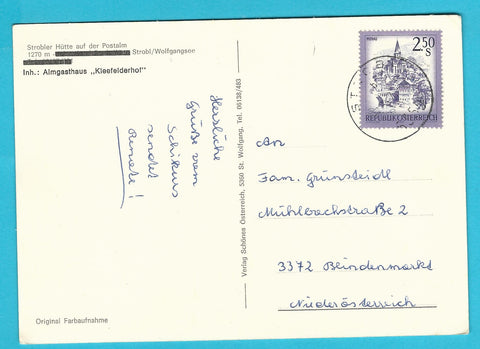 Strobler Hütte auf der Postalm
1270 m - Strobl/Wolfgangsee
Inh.: Almgasthaus „Kleefelderhof"
Herzliche
Grüße vom
Schikurs
sendet
Renate!
Verlag Schönes Österreich, 5360 St. Wolfgang, Tel. 06138/483
2.50
S
REPUBLIK ÖSTERREICH
An
Fam. Grünsteidl
Mühlbachstraße 2
3372 Blindenmarkt
Niederösterreich
Original Farbaufnahme